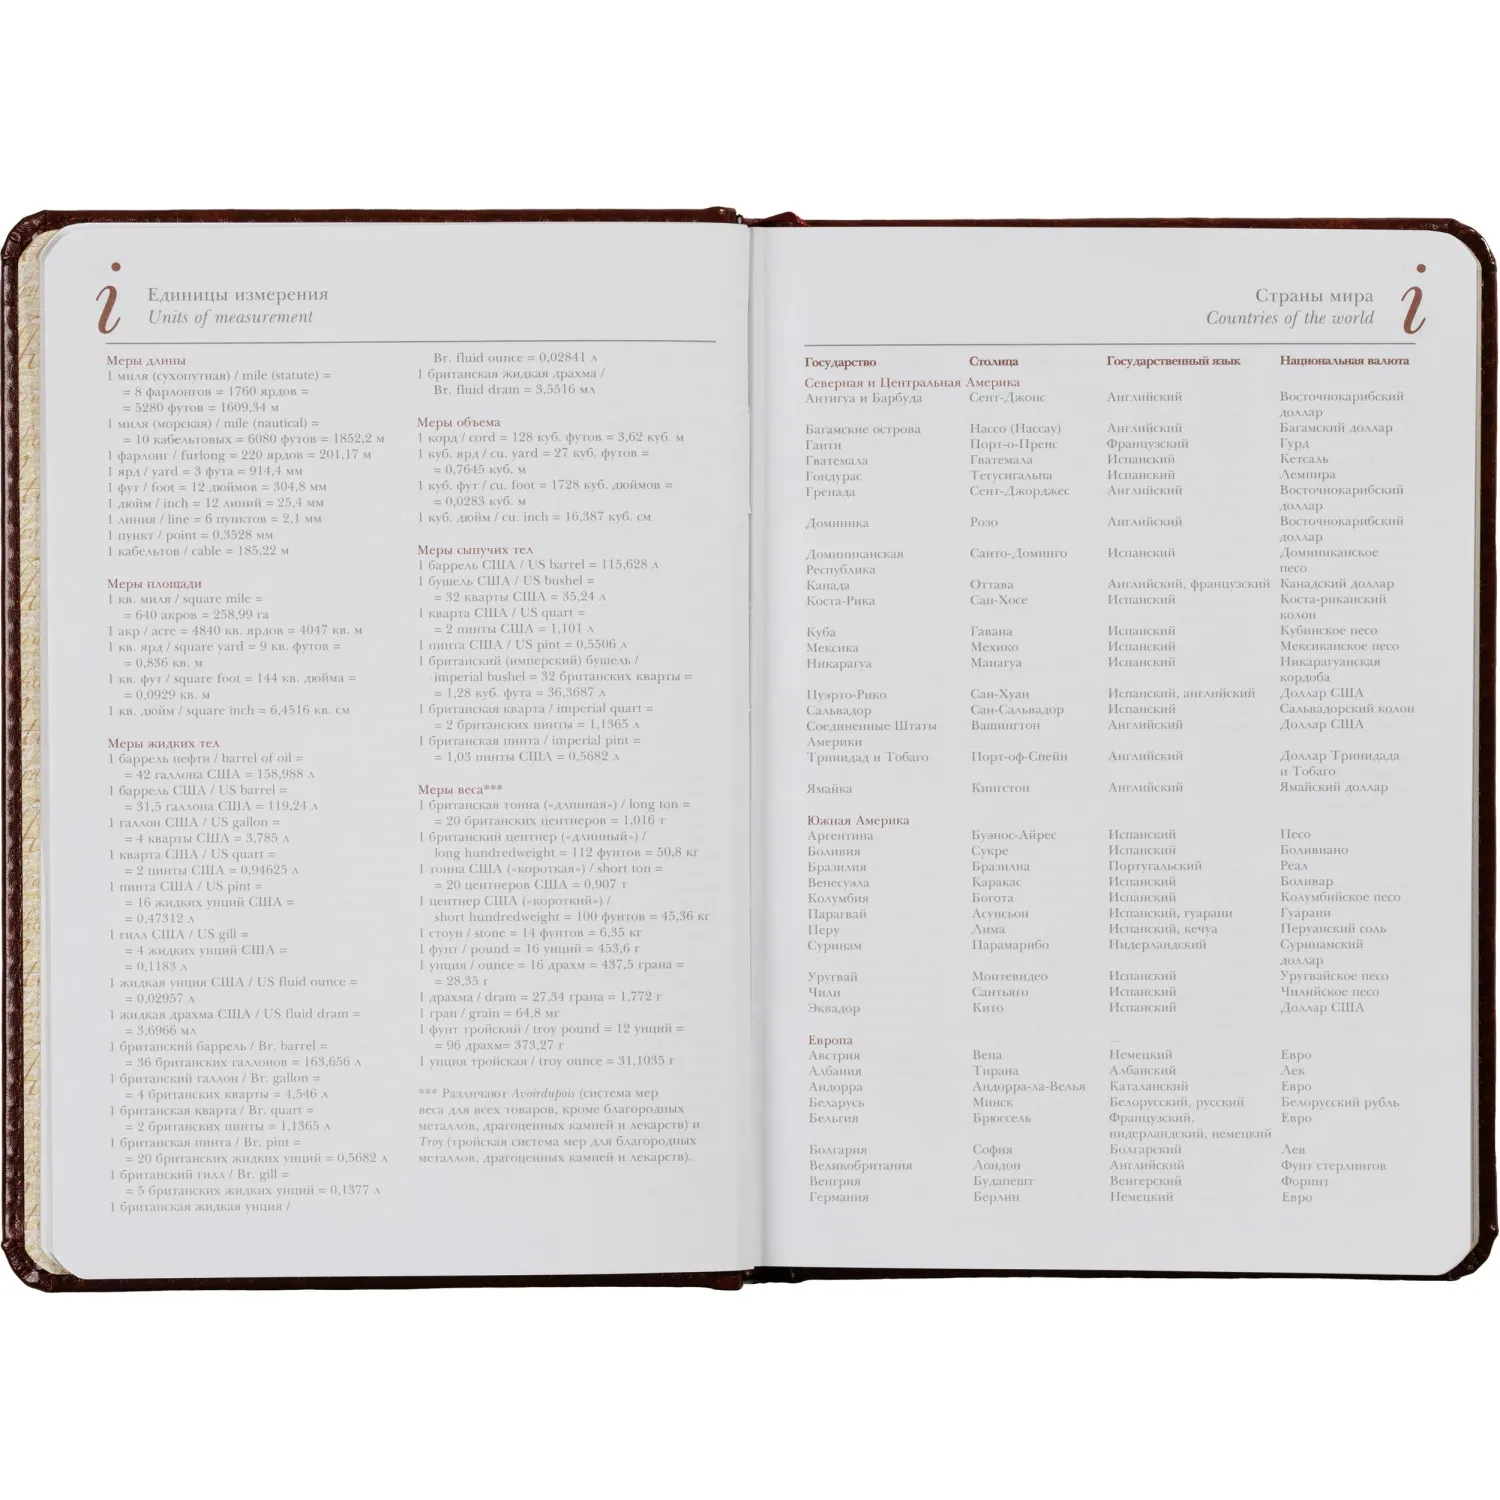 i
Единицы измерения
Units of measurement
Меры длины
1 миля (сухопутная) / mile (statute) =
= 8 фарлонгов = 1760 ярдов =
= 5280 футов = 1609,34 м
1 миля (морская) / mile (nautical) =
= 10 кабельтовых = 6080 футов = 1852,2 м
1 фарлонг / furlong = 220 ярдов = 201,17 м
1 ярд / yard = 3 фута = 914,4 мм
1 фут / foot = 12 дюймов = 304,8 мм
1 дюйм / inch = 12 линий = 25,4 мм
1 линия / line = 6 пунктов = 2,1 мм
1 пункт / point = 0,3528 мм
1 кабельтов / cable = 185,22 м
Меры площади
1 кв. миля / square mile =
= 640 акров = 258,99 га
1 акр / acre = 4840 кв. ярдов = 4047 кв. м
1 кв. ярд / square yard = 9 кв. футов =
= 0,836 кв. м
1 кв. фут / square foot = 144 кв. дюйма =
= 0,0929 кв. м
1 кв. дюйм / square inch = 6,4516 кв. см
Меры жидких тел
1 баррель нефти / barrel of oil =
= 42 галлона США = 158,988 л
1 баррель США / US barrel =
= 31,5 галлона США = 119,24 л
1 галлон США / US gallon =
= 4 кварты США = 3,785 л
1 кварта США / US quart =
= 2 пинты США = 0,94625 л
1 пинта США / US pint =
= 16 жидких унций США =
= 0,47312 л
1 гилл США / US gill =
= 4 жидких унций США =
= 0,1183 л
1 жидкая унция США / US fluid ounce =
= 0,02957 л
1 жидкая драхма США / US fluid dram =
= 3,6966 мл
1 британский баррель / Br. barrel =
= 36 британских галлонов = 163,656 л
1 британский галлон / Br. gallon =
= 4 британских кварты = 4,546 л
1 британская кварта / Br. quart =
= 2 британских пинты = 1,1365 л
1 британская пинта / Br. pint =
= 20 британских жидких унций = 0,5682 л
1 британский гилл / Br. gill =
= 5 британских жидких унций = 0,1377 л
1 британская жидкая унция /
Br. fluid ounce = 0,02841 л
1 британская жидкая драхма /
Br. fluid dram = 3,5516 мл
Меры объема
1 корд / cord = 128 куб. футов = 3,62 куб. м
1 куб. ярд / cu. yard = 27 куб. футов =
= 0,7645 куб. м
1 куб. фут / cu. foot = 1728 куб. дюймов =
= 0,0283 куб. м
1 куб. дюйм / cu. inch = 16,387 куб. см
Меры сыпучих тел
1 баррель США / US barrel = 115,628 л
1 бушель США / US bushel =
= 32 кварты США = 35,24 л
1 кварта США / US quart =
= 2 пинты США = 1,101 л
1 пинта США / US pint = 0,5506 л
1 британский (имперский) бушель /
imperial bushel = 32 британских кварты =
= 1,28 куб. фута = 36,3687 л
1 британская кварта / imperial quart =
= 2 британских пинты = 1,1365 л
1 британская пинта / imperial pint =
= 1,03 пинты США = 0,5682 л
Меры веса***
1 британская тонна («длинная») / long ton =
= 20 британских центнеров = 1,016 т
1 британский центнер («длинный») /
long hundredweight = 112 фунтов = 50,8 кг
1 тонна США («короткая») / short ton =
= 20 центнеров США = 0,907 т
1 центнер США («короткий») /
short hundredweight = 100 фунтов = 45,36 кг
1 стоун / stone = 14 фунтов = 6,35 кг
1 фунт / pound = 16 унций = 453,6 г
1 унция / ounce = 16 драхм = 437,5 грана =
= 28,35 г
1 драхма / dram = 27,34 грана = 1,772 г
1 гран / grain = 64,8 мг
1 фунт тройский / troy pound = 12 унций =
= 96 драхм= 373,27 г
1 унция тройская / troy ounce = 31,1035 г
*** Различают Avoirdupois (система мер
веса для всех товаров, кроме благородных
металлов, драгоценных камней и лекарств) и
Troy (тройская система мер для благородных
металлов, драгоценных камней и лекарств).
Страны мира
Countries of the world
i
Государство Столица Государственный язык Национальная валюта
Северная и Центральная Америка
Антигуа и Барбуда Сент-Джонс Английский Восточнокарибский
доллар
Багамские острова Нассо (Нассау) Английский Багамский доллар
Гаити Порт-о-Пренс Французский Гурд
Гватемала Гватемала Испанский Кетсаль
Гондурас Тегусигальпа Испанский Лемпира
Гренада Сент-Джорджес Английский Восточнокарибский
доллар
Доминика Розо Английский Восточнокарибский
доллар
Доминиканская Санто-Доминго Испанский Доминиканское
Республика песо
Канада Оттава Английский, французский Канадский доллар
Коста-Рика Сан-Хосе Испанский Коста-риканский
колон
Куба Гавана Испанский Кубинское песо
Мексика Мехико Испанский Мексиканское песо
Никарагуа Манагуа Испанский Никарагуанская
кордоба
Пуэрто-Рико Сан-Хуан Испанский, английский Доллар США
Сальвадор Сан-Сальвадор Испанский Сальвадорский колон
Соединенные Штаты Вашингтон Английский Доллар США
Америки
Тринидад и Тобаго Порт-оф-Спейн Английский Доллар Тринидада
и Тобаго
Ямайка Кингстон Английский Ямайский доллар
Южная Америка
Аргентина Буэнос-Айрес Испанский Песо
Боливия Сукре Испанский Боливиано
Бразилия Бразилиа Португальский Реал
Венесуэла Каракас Испанский Боливар
Колумбия Богота Испанский Колумбийское песо
Парагвай Асунсьон Испанский, гуарани Гуарани
Перу Лима Испанский, кечуа Перуанский соль
Суринам Парамарибо Нидерландский Суринамский
доллар
Уругвай Монтевидео Испанский Уругвайское песо
Чили Сантьяго Испанский Чилийское песо
Эквадор Кито Испанский Доллар США
Европа
Австрия Вена Немецкий Евро
Албания Тирана Албанский Лек
Андорра Андорра-ла-Велья Каталанский Евро
Беларусь Минск Белорусский, русский Белорусский рубль
Бельгия Брюссель Французский, Евро
нидерландский, немецкий
Болгария София Болгарский Лев
Великобритания Лондон Английский Фунт стерлингов
Венгрия Будапешт Венгерский Форинт
Германия Берлин Немецкий Евро